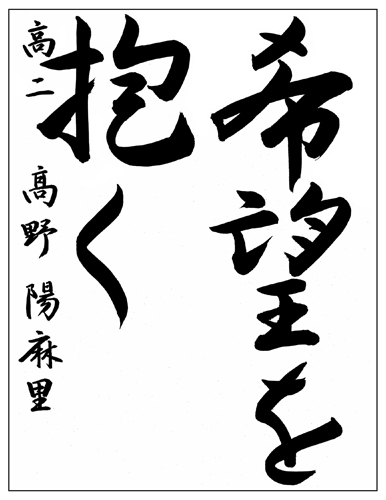 希望を
抱く
高二 髙野 陽麻里